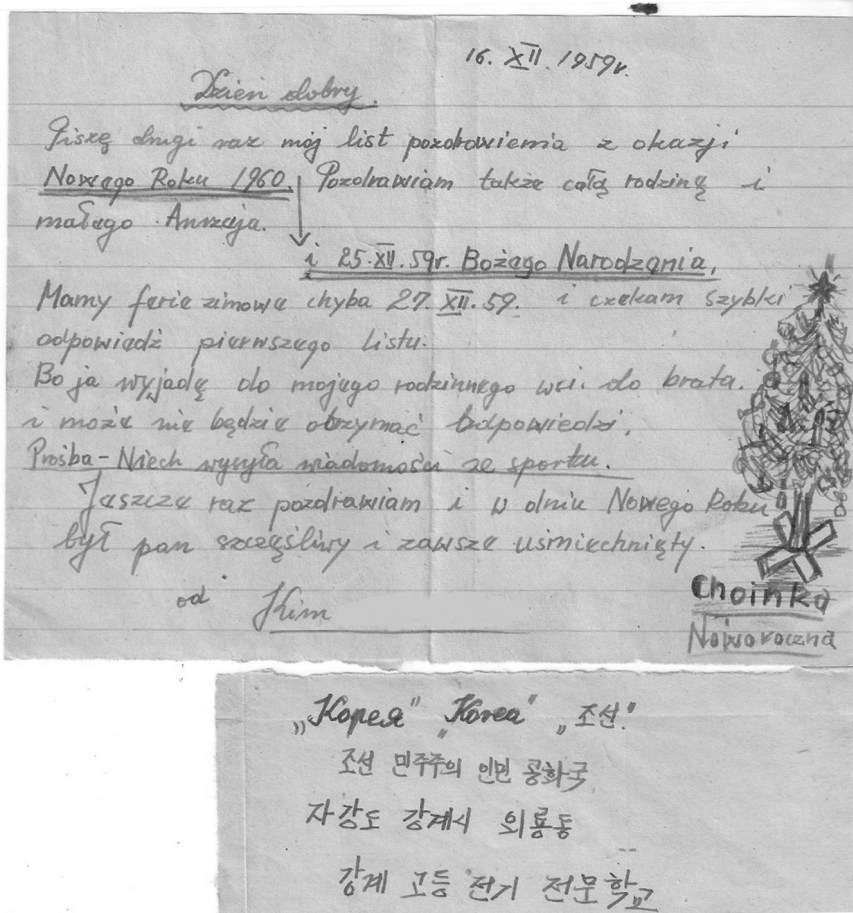 16. XII. 1959r.
Dzień dobry.
Piszę drugi raz mój list pozdrowienia z okazji
Nowego Roku 1960. Pozdrawiam także całą rodzinę i
małego Anrzeja.
i 25.XII.59r. Bożego Narodzenia.
Mamy ferie zimowe chyba 27.XII.59. i czekam szybki
odpowiedź pierwszego listu.
Bo ja wyjadę do mojego rodzinnego wsi. do brata.
i może nie będzie otrzymać odpowiedzi.
Prośba - Niech wysyła wiadomości ze sportu.
Jeszcze raz pozdrawiam i w dniu Nowego Roku
był pan szczęśliwy i zawsze uśmiechnięty.
od Kim
Choinka
Noworoczna
„Корея" „Korea" „조선."
조선 민주주의 인민 공화국
자강도 강계시 외룡동
강계 고등 전기 전문학교